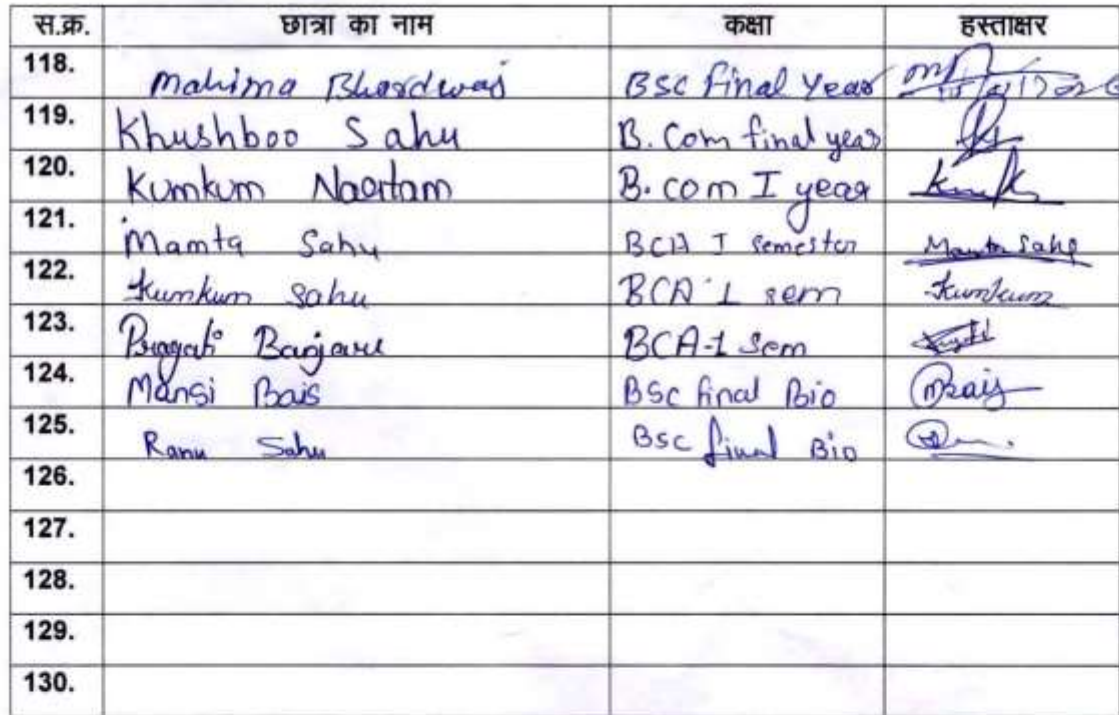 स.क्र. छात्रा का नाम कक्षा हस्ताक्षर
118. Mahima Bhardwaj BSC final Year
119. Khushboo Sahu B.Com final year
120. Kumkum Naortam B.com I year
121. Mamta Sahu BCA I semester Mamta Sahu
122. Kumkum Sahu BCA 1 sem Kumkum
123. Pragati Banjare BCA-1 Sem
124. Mansi Bais BSC final Bio mBais
125. Ranu Sahu BSC final Bio
126.
127.
128.
129.
130.